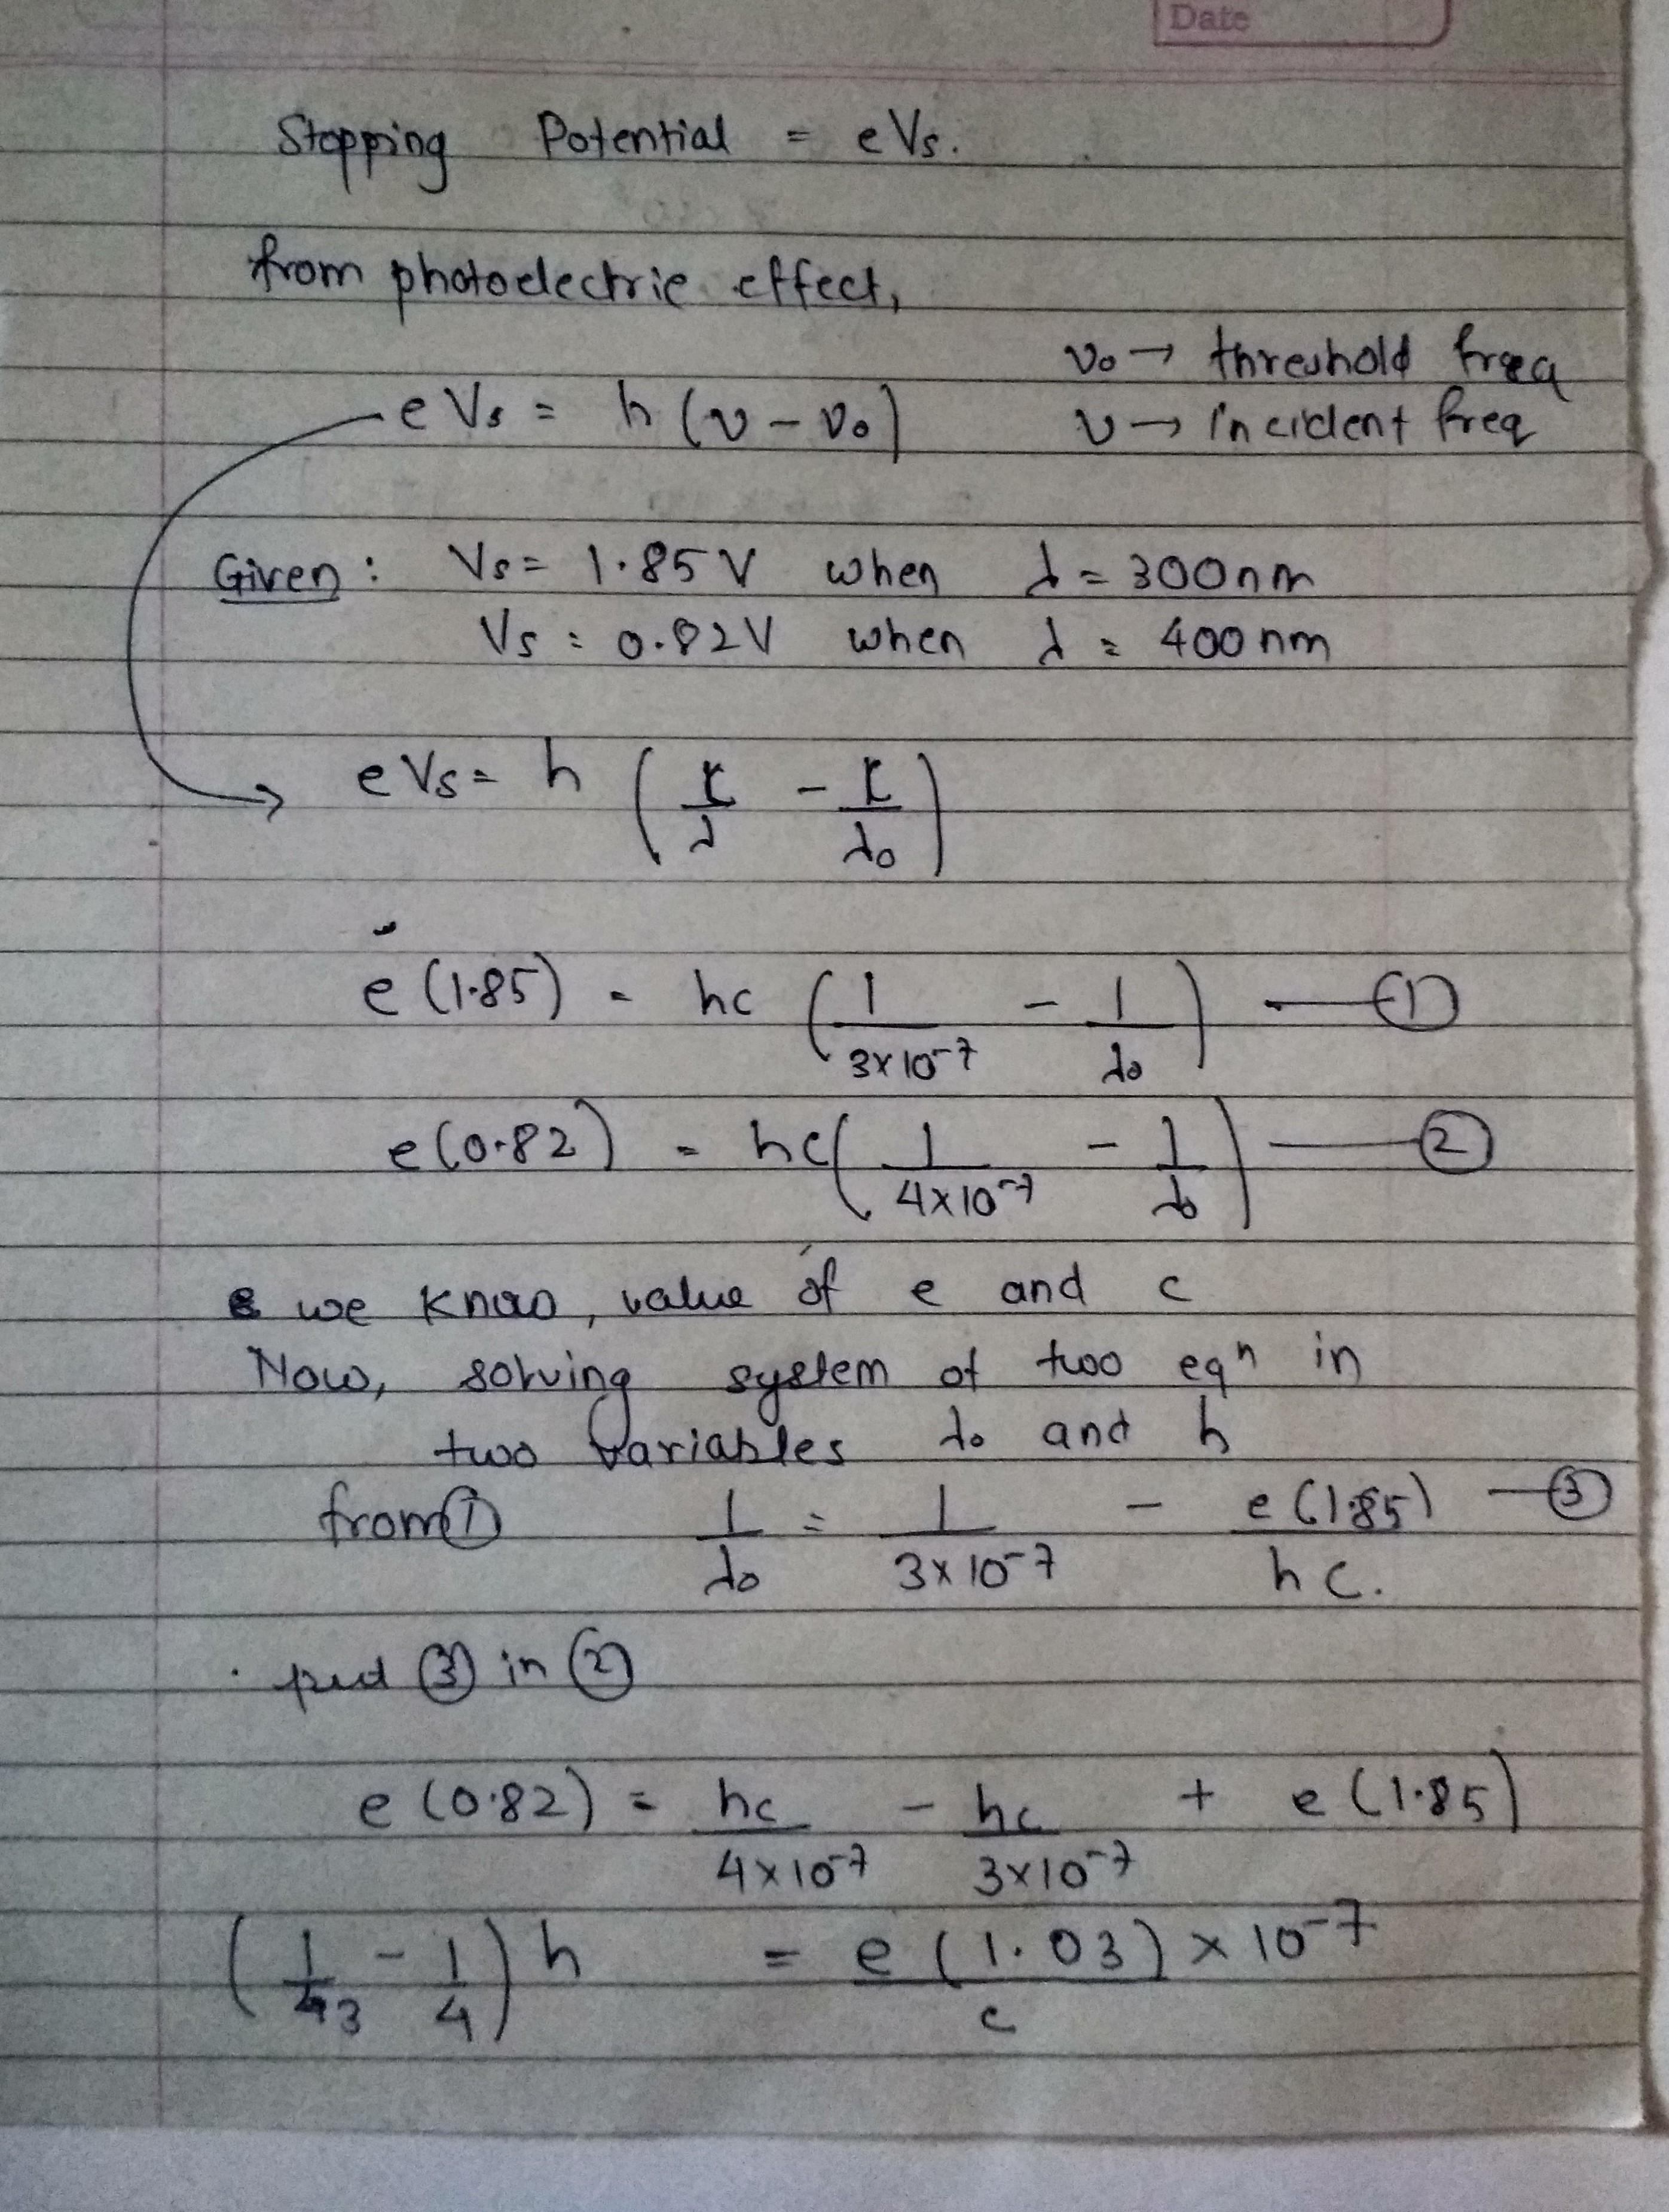 Date
Stopping Potential = eVs.
from photoelectric effect,
ν₀ → threshold freq
eVs = h (ν - ν₀)
ν → incident freq
Given : Vs = 1.85 V when λ = 300nm
Vs = 0.82V when λ = 400 nm
eVs = h ( c/λ - c/λ₀ )
e (1.85) = hc ( 1/3×10⁻⁷ - 1/λ₀ ) — ①
e (0.82) = hc ( 1/4×10⁻⁷ - 1/λ₀ ) — ②
we know, value of e and c
Now, solving system of two eqⁿ in
two variables λ₀ and h
from ① 1/λ₀ = 1/3×10⁻⁷ - e (1.85)/hc. — ③
put ③ in ②
e (0.82) = hc/4×10⁻⁷ - hc/3×10⁻⁷ + e (1.85)
( 1/3 - 1/4 ) h = e (1.03) × 10⁻⁷/c